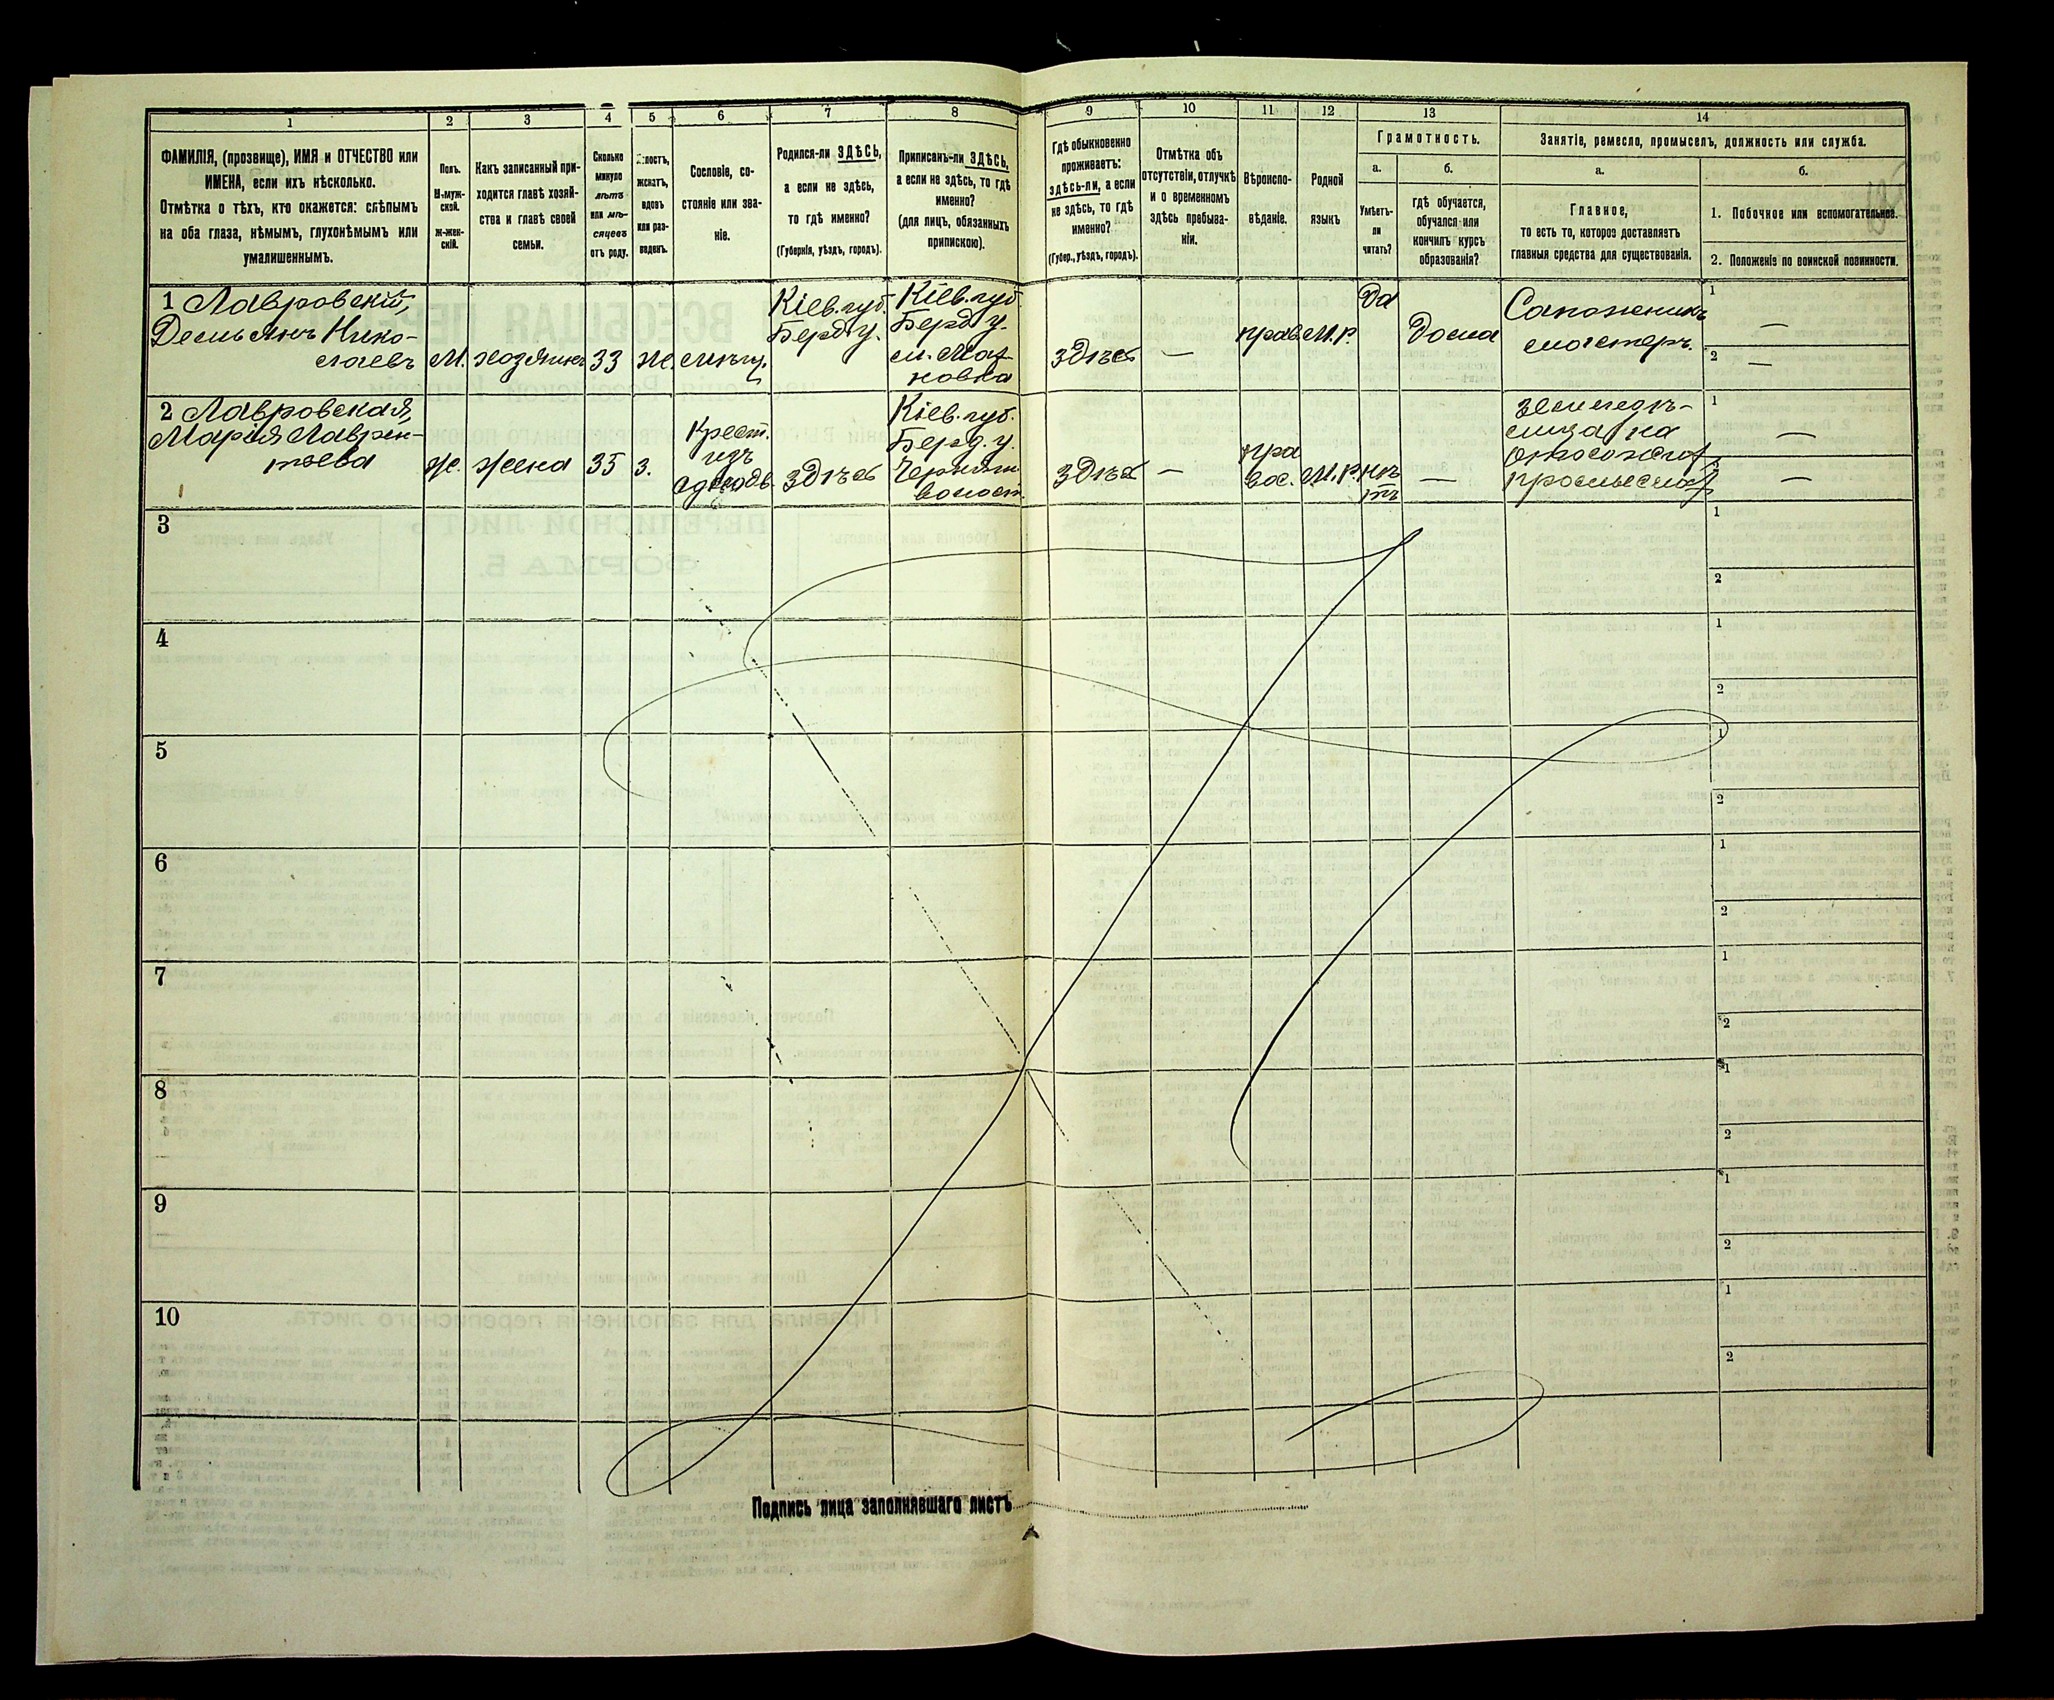 1 2 3 4 5 6 7 8 9 10 11 12 13 14
ФАМИЛІЯ, (прозвище), ИМЯ и ОТЧЕСТВО или
ИМЕНА, если ихъ нѣсколько.
Отмѣтка о тѣхъ, кто окажется: слѣпымъ
на оба глаза, нѣмымъ, глухонѣмымъ или
умалишеннымъ.
Полъ.
М-муж-
ской.
ж-жен-
скій.
Какъ записанный при-
ходится главѣ хозяй-
ства и главѣ своей
семьи.
Сколько
минуло
лѣтъ
или мѣ-
сяцевъ
отъ роду.
Холостъ,
женатъ,
вдовъ
или раз-
веденъ.
Сословіе, со-
стояніе или зва-
ніе.
Родился-ли ЗДѢСЬ,
а если не здѣсь,
то гдѣ именно?
(Губернія, уѣздъ, городъ).
Приписанъ-ли ЗДѢСЬ,
а если не здѣсь, то гдѣ
именно?
(для лицъ, обязанныхъ
припискою).
Гдѣ обыкновенно
проживаетъ:
здѣсь-ли, а если
не здѣсь, то гдѣ
именно?
(Губер., уѣздъ, городъ).
Отмѣтка объ
отсутствіи, отлучкѣ
и о временномъ
здѣсь пребыва-
ніи.
Вѣроиспо-
вѣданіе.
Родной
языкъ
Грамотность.
а.
Умѣетъ-
ли
читать?
б.
гдѣ обучается,
обучался или
кончилъ курсъ
образованія?
Занятіе, ремесло, промыселъ, должность или служба.
а.
Главное,
то есть то, которое доставляетъ
главныя средства для существованія.
б.
1. Побочное или вспомогательное.
2. Положеніе по воинской повинности.
1 Лавровскій,
Демьянъ Нико-
лаевъ
М.
хозяинъ
33
Же.
мѣщ.
Кіев. губ.
Берд у.
Кіев. губ.
Берд у.
м. Мах
новка
Здѣсь
—
прав.
М.р.
Да
Дома
Сапожникъ
мастеръ.
1 —
2 —
2 Лавровская,
Марія Лаврен-
тьева
Же.
жена
35
З.
Крест.
изъ
однодв.
Здѣсь
Кіев. губ.
Берд. у.
волост.
Здѣсь
—
пра
вос.
М.р.
нѣ
тъ
—
на
1 —
—
3
1
2
4
1
2
5
1
2
6
1
2
7
1
2
8
1
2
9
1
2
10
1
2
Подпись лица заполнявшаго листъ